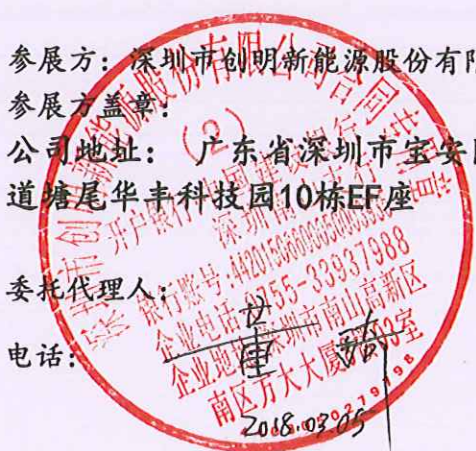 参展方：深圳市创明新能源股份有限
参展方盖章：
公司地址： 广东省深圳市宝安
道塘尾华丰科技园10栋EF座
委托代理人：
电话：
2018.03.05
深圳市创明新能源股份有限公司合同专用章
（2）
开户银行:中国建设银行
深圳
银行账号:
企业电话:0755-33937988
企业地址:深圳市南山高新区
南区方大大厦